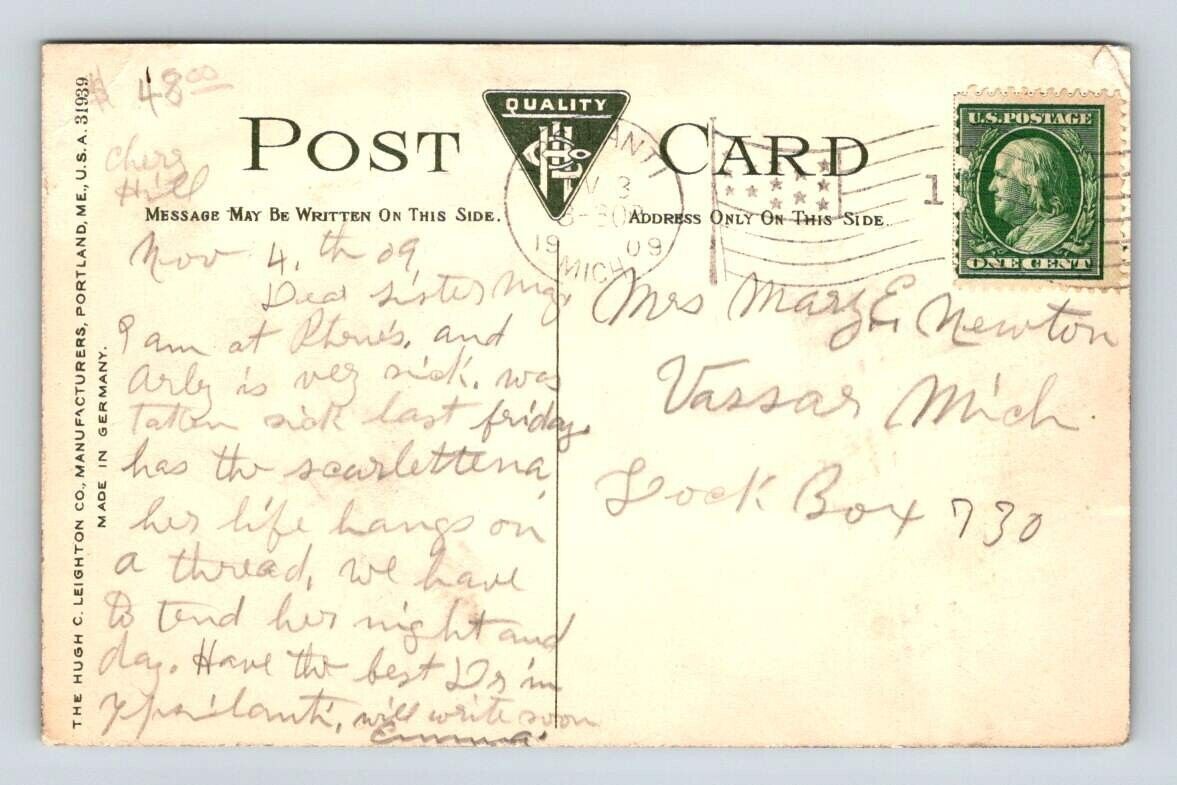 $ 48.00
Chery
Hill
POST CARD
QUALITY
MESSAGE MAY BE WRITTEN ON THIS SIDE.
ADDRESS ONLY ON THIS SIDE.
THE HUGH C. LEIGHTON CO., MANUFACTURERS, PORTLAND, ME., U.S.A. 31939
MADE IN GERMANY.
V 3
19 09
MICH
1
U.S. POSTAGE
ONE CENT
Nov 4.th 09
Dear sister Mary
I am at Phene's, and
Arly is very sick, was
taken sick last friday.
has the scarlettena
her life hangs on
a thread, we have
to tend her night and
day. Have the best Drs in
ypsilanti, will write soon
Emma.
Mrs Mary E. Newton
Vassar Mich.
Lock Box 730